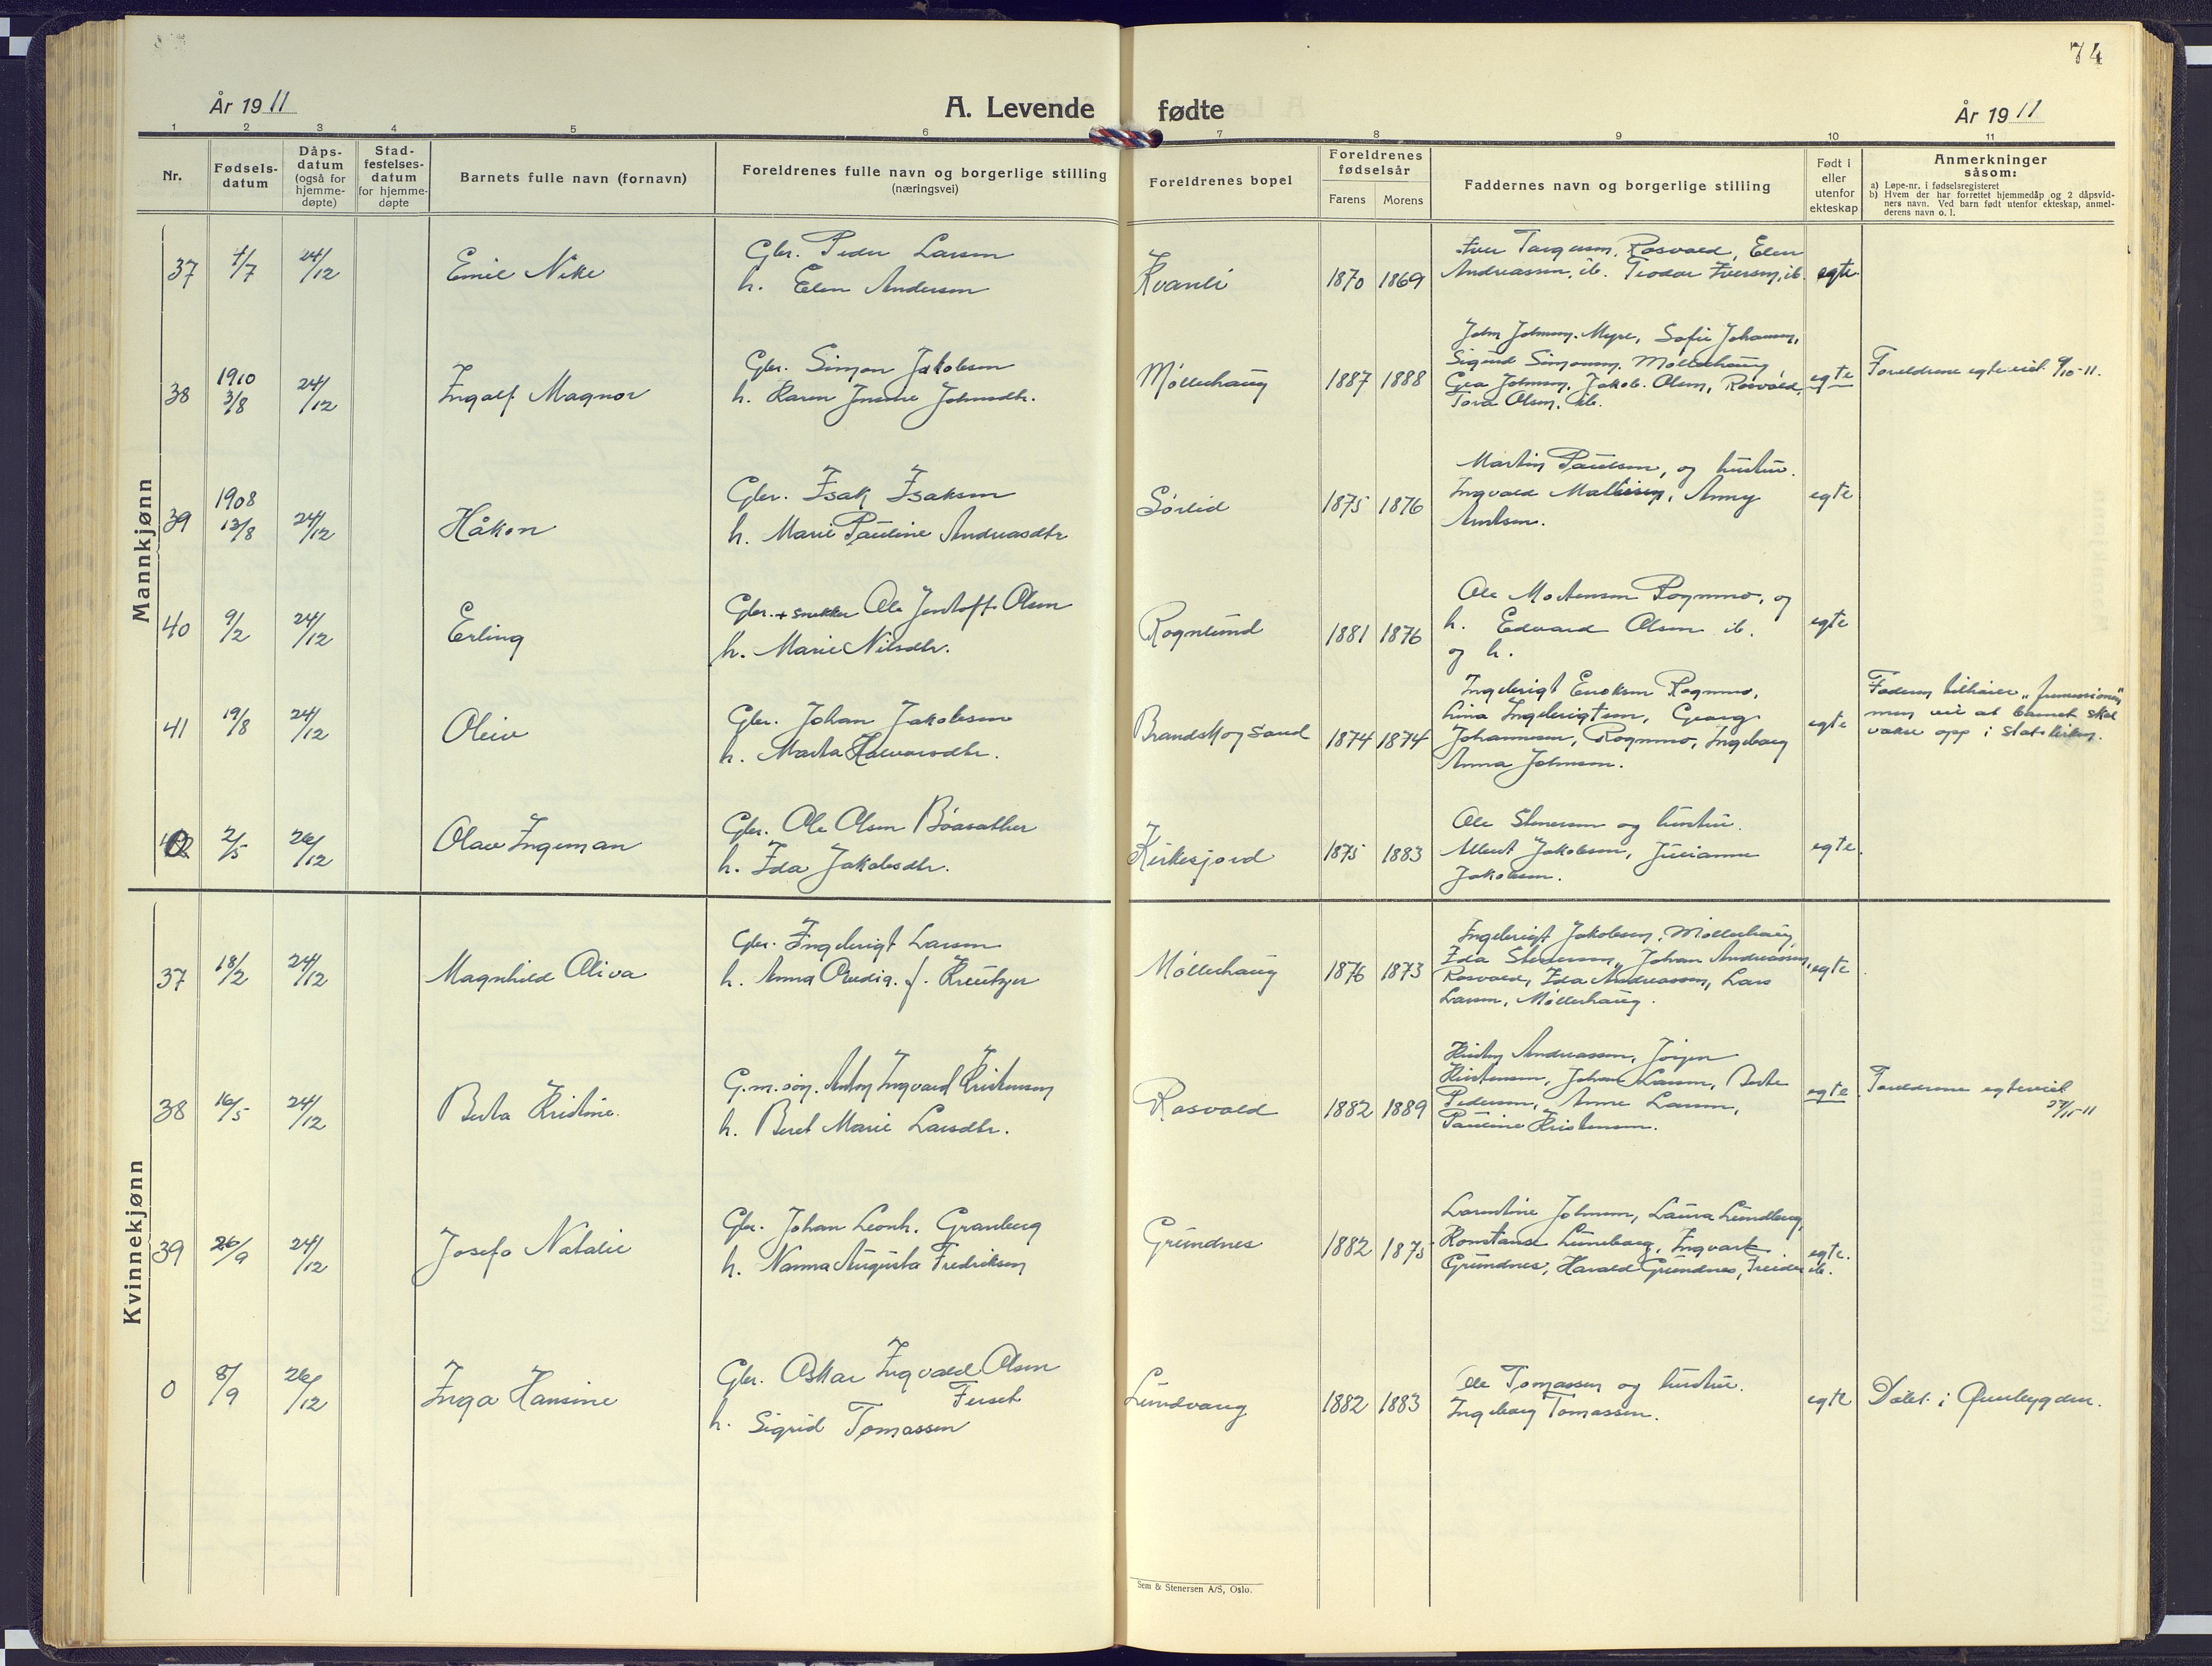 74
År 1911
A. Levende fødte
År 1911
1 2 3 4 5 6 7 8 9 10 11
Nr.
Fødsels-
datum
Dåps-
datum
(også for
hjemme-
døpte)
Stad-
festelses-
datum
for hjemme-
døpte
Barnets fulle navn (fornavn)
Foreldrenes fulle navn og borgerlige stilling
(næringsvei)
Foreldrenes bopel
Foreldrenes
fødselsår
Farens Morens
Faddernes navn og borgerlige stilling
Født i
eller
utenfor
ekteskap
Anmerkninger
såsom:
a) Løpe-nr. i fødselsregisteret
b) Hvem der har forrettet hjemmedåp og 2 dåpsvid-
ners navn. Ved barn født utenfor ekteskap, anmel-
derens navn o. l.
Mannkjønn
37 4/7 24/12 Emil Nike
Gbr. Peder Larsen
h. Elen Andersen
Kvanli 1870 1869
Iver Rosvold, Elen
Andreassen, ib. Teodor Iversen, ib.
egte
38 1910 3/8 24/12 Ingolf Magnor
Gbr. Simon Jakobsen
h. Karen Johnsdtr.
Møllerhaug 1887 1888
John Johnsen Myre, Sofie Johansen,
Sigurd Simonsen, Møllerhaug
Johnsen, Jakob Olsen, Rosvold,
Tora Olsen, ib.
egte
Foreldrene egteviet 9/10-11.
39 1908 13/8 24/12 Håkon
Gbr. Isak Isaksen
h. Marie Pauline Andreasdtr
Sørlid 1875 1876
Martin Paulsen, og hustru.
Ingvald Mathisen, Anny
Arntsen.
egte
40 9/2 24/12 Erling
Gbr. + snekker Ole Jentoft Olsen
h. Marie Nilsdtr.
Rognlund 1881 1876
Ole Mortensen Rognmo, og
h. Edvard Olsen ib.
og h.
egte
41 19/8 24/12 Oleiv
Gbr. Johan Jakobsen
h. Marta Halvorsdtr.
Brandskogsand 1874 1874
Ingebrigt Enoksen Rognmo,
Lina Ingebrigtsen, Georg
Johannesen, Rognmo, Ingeborg
Anna Johnsen.
egte
Faderen tilhører „frimissionen"
men vil at barnet skal
vokse opp i statskirken.
0 2/5 26/12 Olav Ingeman
Gbr. Ole Olsen Bóasæther
h. Ida Jakobsdtr.
Kirkesjord 1875 1883
Ole Stenersen og hustru.
Albert Jakobsen, Julianne
Jakobsen.
egte.
Kvinnekjønn
37 18/2 24/12 Magnhild Oliva
Gbr. Ingebrigt Larsen
h. Anna Ovedia f. Kreutzer
Møllerhaug 1876 1873
Ingebrigt Jakobsen, Møllerhaug,
Ida Stenersen, Johan Andreassen,
Rosvold, Ida Andreassen, Lars
Larsen, Møllerhaug.
egte
38 16/5 24/12 Berta Kristine.
G.m.søn. Anton Ingvard Kristensen
h. Beret Marie Larsdtr.
Rosvold 1882 1889
Kristen Andreassen, Jörgen
Kristensen, Johan Larsen, Berte
Pedersen, Anne Larsen,
Pauline Kristensen.
egte
Foreldrene egteviet
27/5-11
39 26/9 24/12 Josefa Natalie
Gbr. Johan Leonh. Granberg
h. Nanna Augusta Fredriksen
Grundnes 1882 1875
Laurentine Johnsen, Laura Lundberg,
Konstanse Lundberg, Ingvart
Grundnes, Harald Grundnes, ib.
egte.
0 8/9 26/12 Inga Hansine
Gbr. Oskar Ingvald Olsen
Fuset
h. Sigrid Tomassen
Lundvang 1882 1883
Ole Tomassen og hustru.
Ingeborg Tomassen.
egte
Døbt i Øverbygden.
Sem & Stenersen A/S, Oslo.